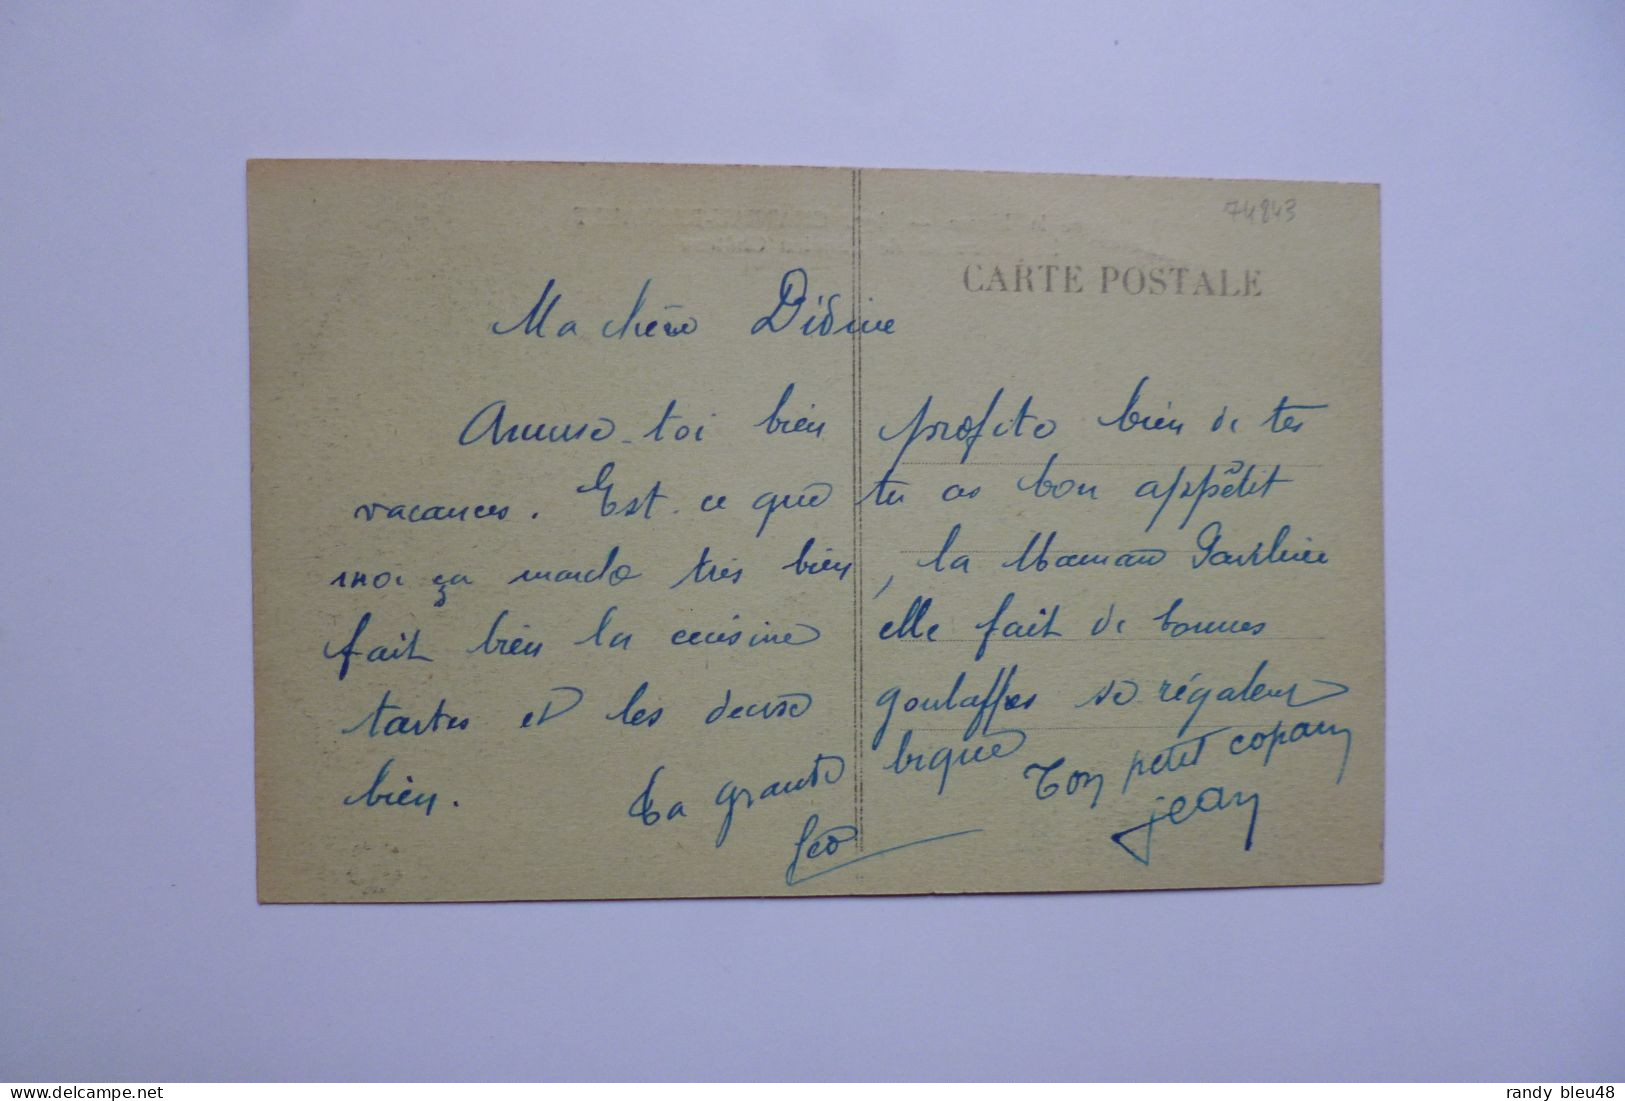 74843
CARTE POSTALE
Ma chère Didine
Amuse-toi bien profite bien de tes
vacances. Est-ce que tu as bon appêtit
moi ça marche très bien, la Maman Pauline
fait bien la cuisine elle fait de bonnes
tartes et les deux goulaffes se régalent
bien. Ta grande bique Ton petit copain
Géo Jean
randy bleu48